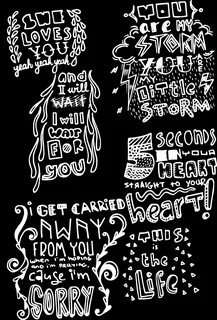 SHE
LOVES
YOU
yeah yeah yeah
and
I will
WAIT
I will
WAIT
FOR
YOU
I GET CARRIED
AWAY
FROM YOU
when i'm hoping
and i'm praying,
cause I'm
SORRY
YOU
are MY
STORM
YOU'RE
MY
little
STORM
5 SECONDS
IN YOUR
HEART
STRAIGHT TO YOUR
heart!
THIS
is the
Life